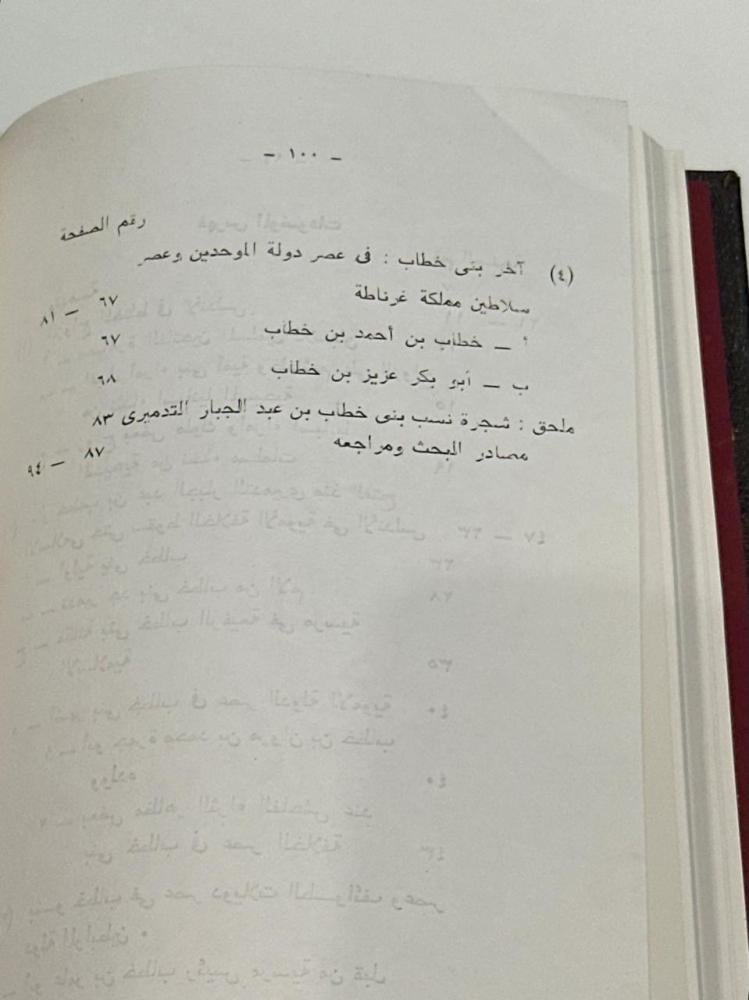 – ١٠٠ –
رقم الصفحة
(٤) آخر بنى خطاب : فى عصر دولة الموحدين وعصر
سلاطين مملكة غرناطة ٦٧ – ٨١
أ – خطاب بن أحمد بن خطاب ٦٧
ب – أبو بكر عزيز بن خطاب ٦٨
ملحق : شجرة نسب بنى خطاب بن عبد الجبار التدميرى ٨٣
مصادر البحث ومراجعه ٨٧ – ٩٤